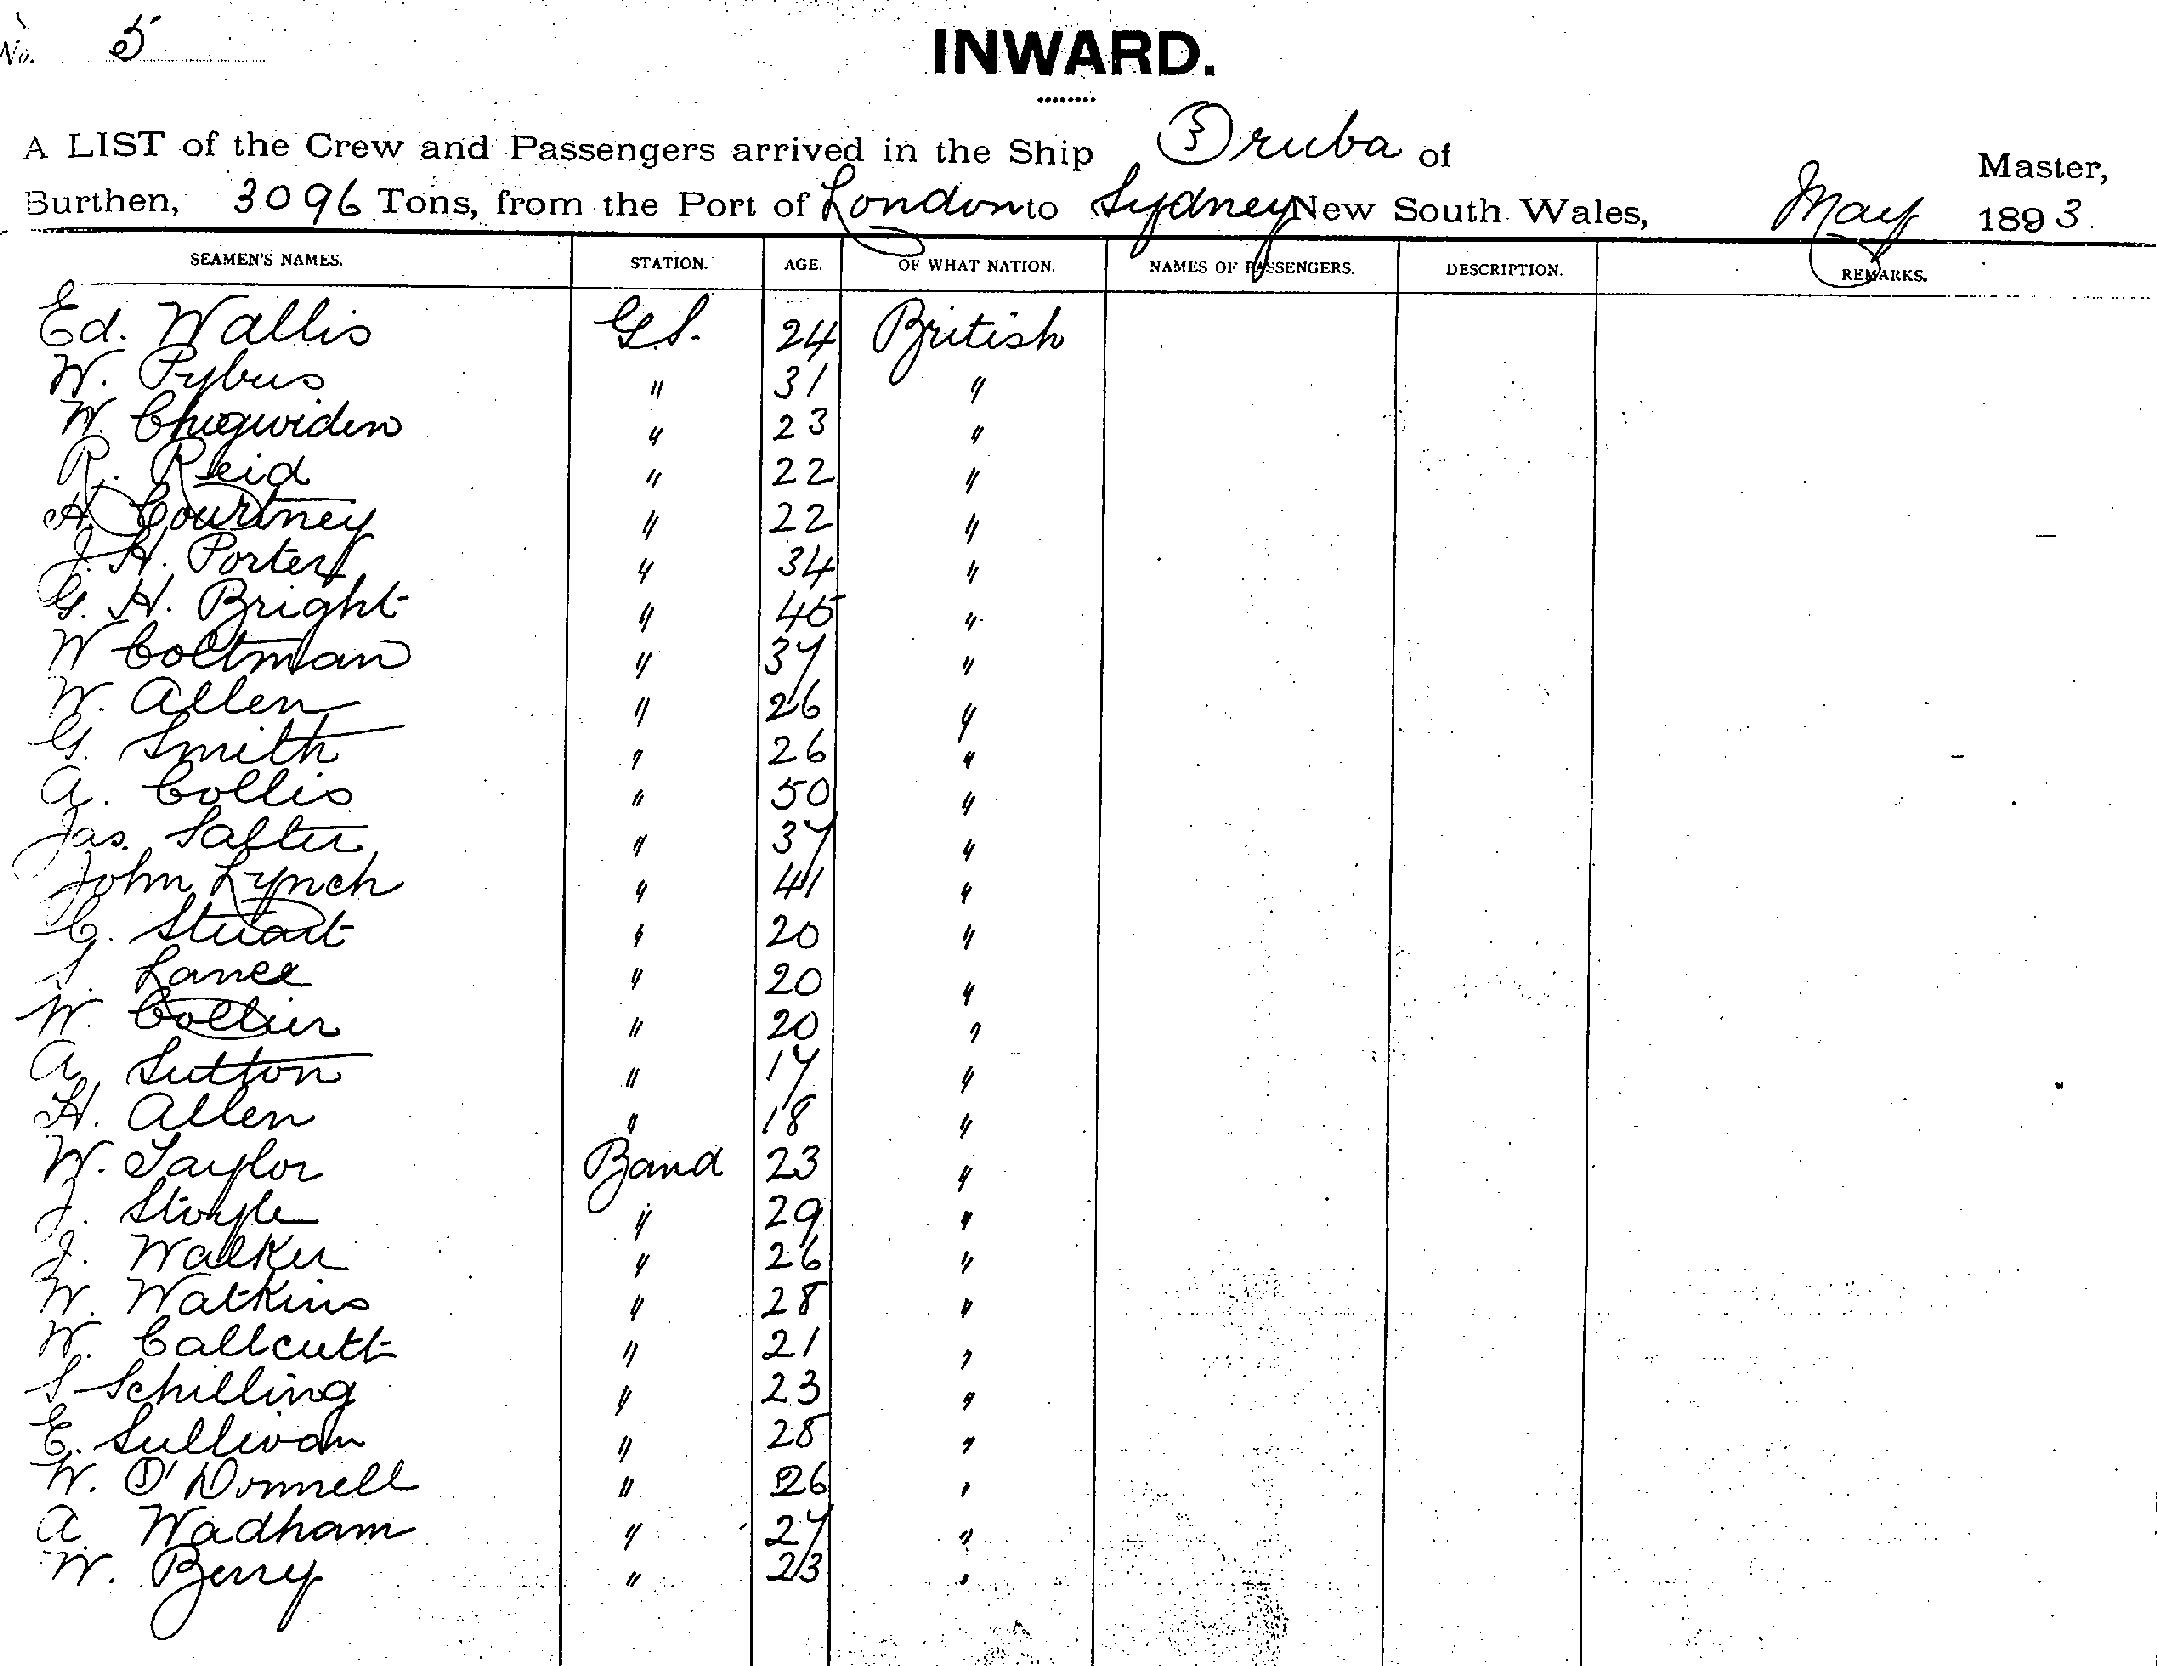 No. 5
INWARD.
A LIST of the Crew and Passengers arrived in the Ship Oruba of Master,
Burthen, 3096 Tons, from the Port of London to Sydney New South Wales, May 1893.
SEAMEN'S NAMES. STATION. AGE. OF WHAT NATION. NAMES OF PASSENGERS. DESCRIPTION. REMARKS.
Ed. Wallis G.S. 24 British
W. Pybus " 31 "
W. Chegwiden " 23 "
R. Reid " 22 "
A. Courtney " 22 "
J. H. Porter " 34 "
G. H. Bright " 45 "
W Coltman " 37 "
W. Allen " 26 "
G. Smith " 26 "
A. Collis " 50 "
Jas. Salter " 37 "
John Lynch " 41 "
C. Stuart " 20 "
S. Lance " 20 "
W. Collier " 20 "
A. Sutton " 17 "
H. Allen " 18 "
W. Taylor Band 23 "
J. Stoyle " 29 "
J. Walker " 26 "
W. Watkins " 28 "
W. Callcutt " 21 "
S Schilling " 23 "
E. Sullivan " 28 "
W. O'Donnell " 26 "
A Wadham " 27 "
W. Berry " 23 "